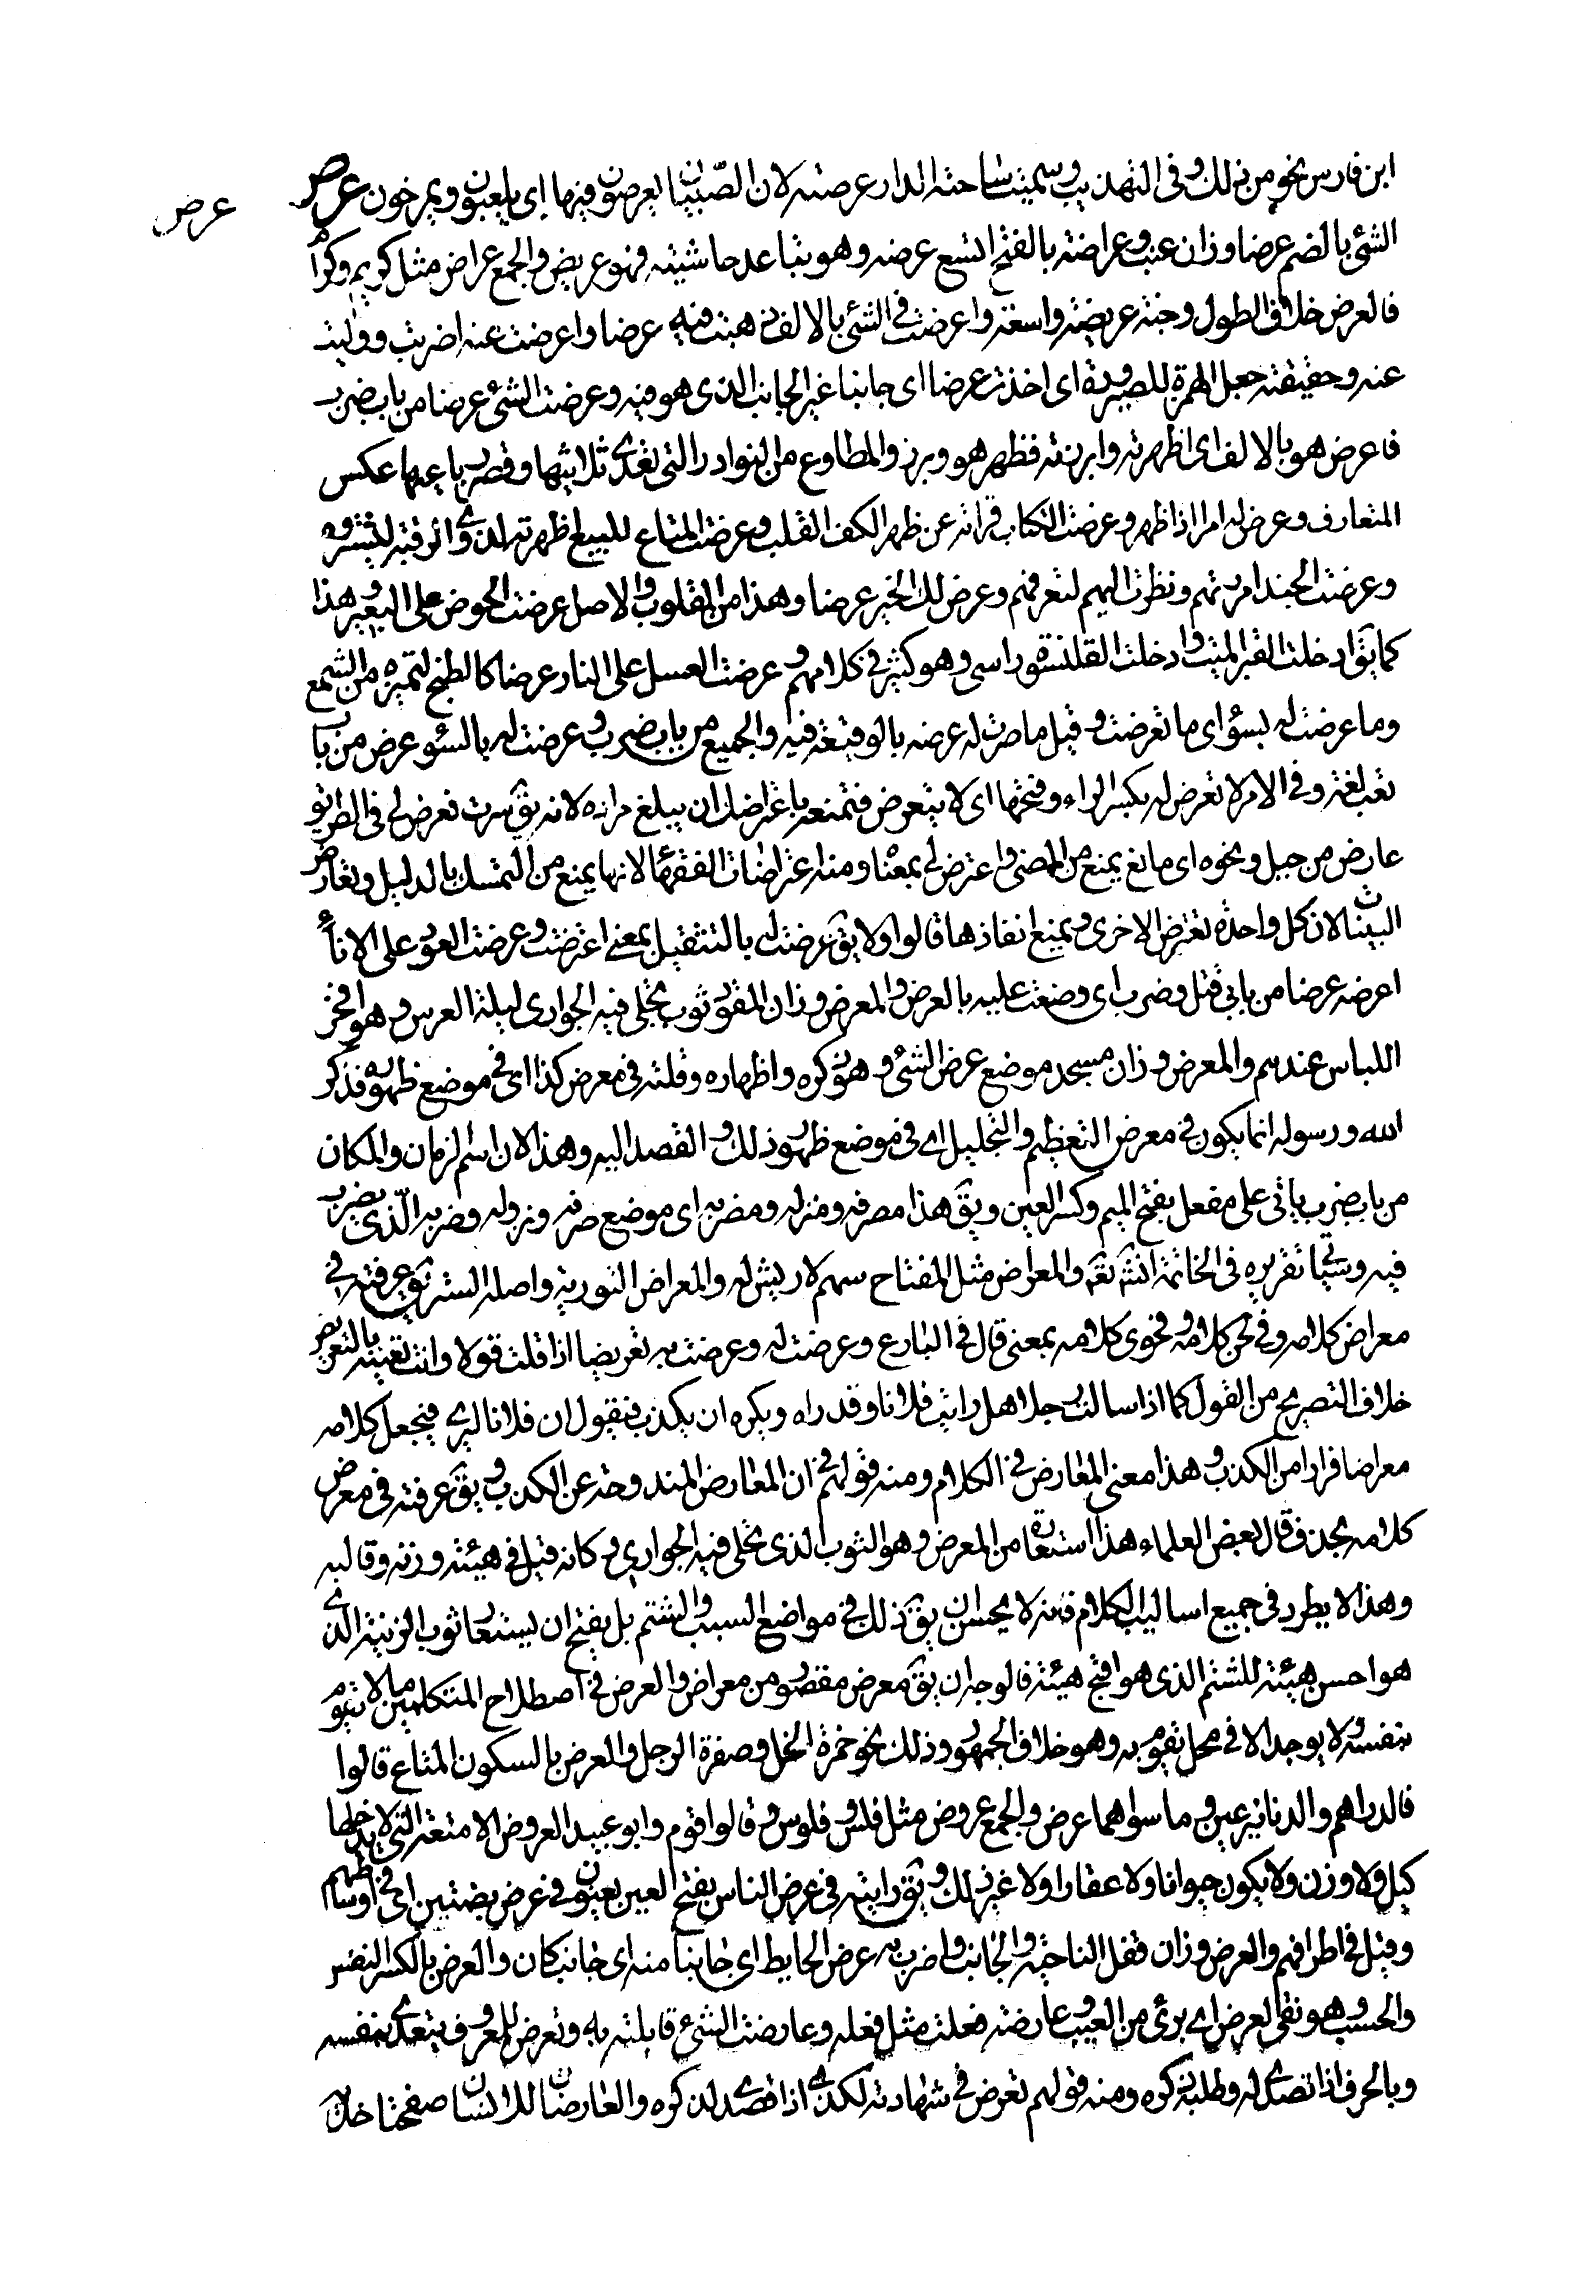 ابن فارس نحو من ذلك وفى التهذيب وسميت ساحة الدار عرصة لان الصبيان يعرصون فيها اى يلعبون ويمرحون عرض
عرض
الشئ بالضم عرضا وزان عنب وعراضة بالفتح اتسع عرضه وهو تباعد حاشيته فهو عريض والجمع عراض مثل كريم وكرام
فالعرض خلاف الطول وجنة عريضة واسعة واعرضت فى الشئ بالالف ذهبت فيه عرضا واعرضت عنه اضربت ووليت
عنه وحقيقته جعل الهمزة للصيرورة اى اخذت عرضا اى جانبا غير الجانب الذى هو فيه وعرضت الشئ عرضا من باب ضرب
فاعرض هو بالالف اى اظهرته وابرزته فظهر هو وبرز والمطاوع من النوادر التى تعدى ثلاثيها وقصر رباعيها عكس
المتعارف وعرض له امر اذا ظهر وعرضت الكتاب قراته عن ظهر القلب وعرضت المتاع للبيع اظهرته لذوى الرغبة ليشتروه
وعرضت الجند امررتهم ونظرت اليهم لتعرفهم وعرض لك الخير عرضا وهذا من المقلوب والاصل عرضت الحوض على البعير وهذا
كما يق ادخلت القبر الميت وادخلت القلنسوة راسى وهو كثير فى كلامهم وعرضت العسل على النار عرضا كالطبخ لتميزه من الشمع
وما عرضت له بسوء اى ما تعرضت وقيل ما صرت له عرضة بالوقيعة فيه والجميع من باب ضرب وعرضت له بالسوء عرض من باب
تعب لغة وفى الامر لا تعرض له بكسر الراء وفتحها اى لا تتعرض فتمنعه باعتراضك ان يبلغ مراده لانه يق سرت فعرض لى فى الطريق
عارض من جبل ونحوه اى مانع يمنع من المضى واعترض لى بمعناه ومنه اعتراضات الفقهاء لانها تمنع من التمسك بالدليل وتعارض
البينات لان كل واحدة تعترض الاخرى وتمنع نفاذها قالوا ولا يق عرضت له بالتثقيل بمعنى اعترضت وعرضت العود على الاناء
اعرضه عرضا من بابى قتل وضرب اى وضعت عليه بالعرض والمعرض وزان المقود ثوب تجلى فيه الجوارى ليلة العرس وهو افخر
اللباس عندهم والمعرض وزان مسجد موضع عرض الشئ وهو ذكره واظهاره وقلته فى معرض كذا اى فى موضع ظهوره فذكر
الله ورسوله انما يكون فى معرض التعظيم والتجليل اى فى موضع ظهور ذلك والقصد اليه وهذا لان اسم الزمان والمكان
من باب ضرب ياتى على مفعل بفتح الميم وكسر العين ويق هذا مصرفه ومنزله ومضربه اى موضع صرفه ونزوله وضربه الذى يضرب
فيه وسيجئ تقريره فى الخاتمة انشه تعه والمعراض مثل المفتاح سهم لا ريش له والمعراض التورية واصله الستر يق عرفته فى
معراض كلامه وفى لحن كلامه وفحوى كلامه بمعنى قال فى البارع وعرضت له وعرضت به تعريضا اذا قلت قولا وانت تعنيه بالتعريض
خلاف التصريح من القول كما اذا سالت رجلا هل رايت فلانا وقد راه ويكره ان يكذب فيقول ان فلانا ليرى فيجعل كلامه
معراضا فرارا من الكذب وهذا معنى المعاريض فى الكلام ومنه قولهم ان فى المعاريض لمندوحة عن الكذب ويق عرفته فى معرض
كلامه بحذف قال بعض العلماء هذا استعارة من المعرض وهو الثوب الذى تجلى فيه الجوارى وكانه قيل فى هيئته وزيه وقالبه
وهذا لا يطرد فى جميع اساليب الكلام فانه لا يحسن ان يق ذلك فى مواضع السب والشتم بل يقبح ان يستعار ثوب الزينة الذى
هو احسن هيئة للشتم الذى هو اقبح هيئة فالوجه ان يق معرض مقصور من معراض والعرض فى اصطلاح المتكلمين ما لا يقوم
بنفسه ولا يوجد الا فى محل يقوم به وهو خلاف الجوهر وذلك نحو حمرة الخجل وصفرة الوجل والعرض بالسكون المتاع قالوا
فالدراهم والدنانير عين وما سواهما عرض والجمع عروض مثل فلس وفلوس وقالوا قوم وابو عبيد العروض الامتعة التى لا يدخلها
كيل ولا وزن ولا يكون حيوانا ولا عقارا ولا غير ذلك ويق رايته فى عرض الناس بفتح العين يعنون فى عرض بضمتين اى فى اوساطهم
وقيل فى اطرافهم والعرض وزان قفل الناحية والجانب واضرب به عرض الحايط اى جانبا منه اى جانب كان والعرض بالكسر النفس
والحسب وهو نقى العرض اى برئ من العيب وعارضته فعلت مثل فعله وعارضت الشئ قابلته به وتعرض للمعروف يتعدى بنفسه
وبالحرف اذا تصدى له وطلبه ذكره ومنه قولهم تعرض فى شهادته لكذا اذا تصدى لذكره والعارضان للانسان صفحتا خده